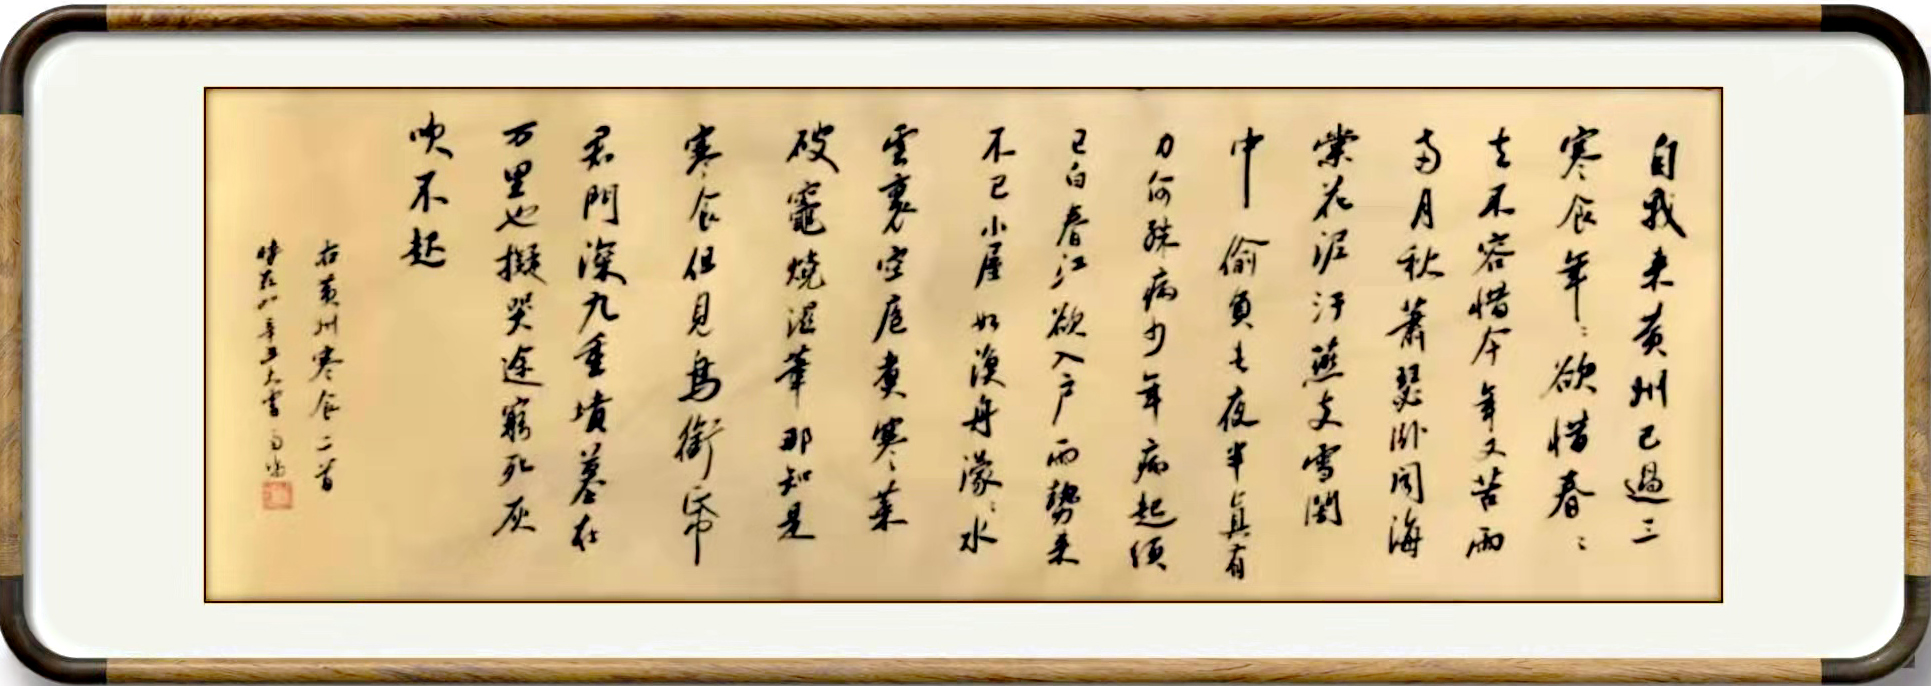 自我来黄州已過三
寒食年〻欲惜春〻
去不容惜今年又苦雨
两月秋蕭瑟卧闻海
棠花泥汙燕支雪闇
中偷負去夜半真有
力何殊病少年病起須
已白春江欲入户雨勢来
不已小屋如漁舟濛〻水
雲裏空庖煮寒菜
破竈燒湿葦那知是
寒食但見烏銜帋
君門深九重墳墓在
万里也擬哭途窮死灰
吹不起
右黄州寒食二首
時在辛丑大雪